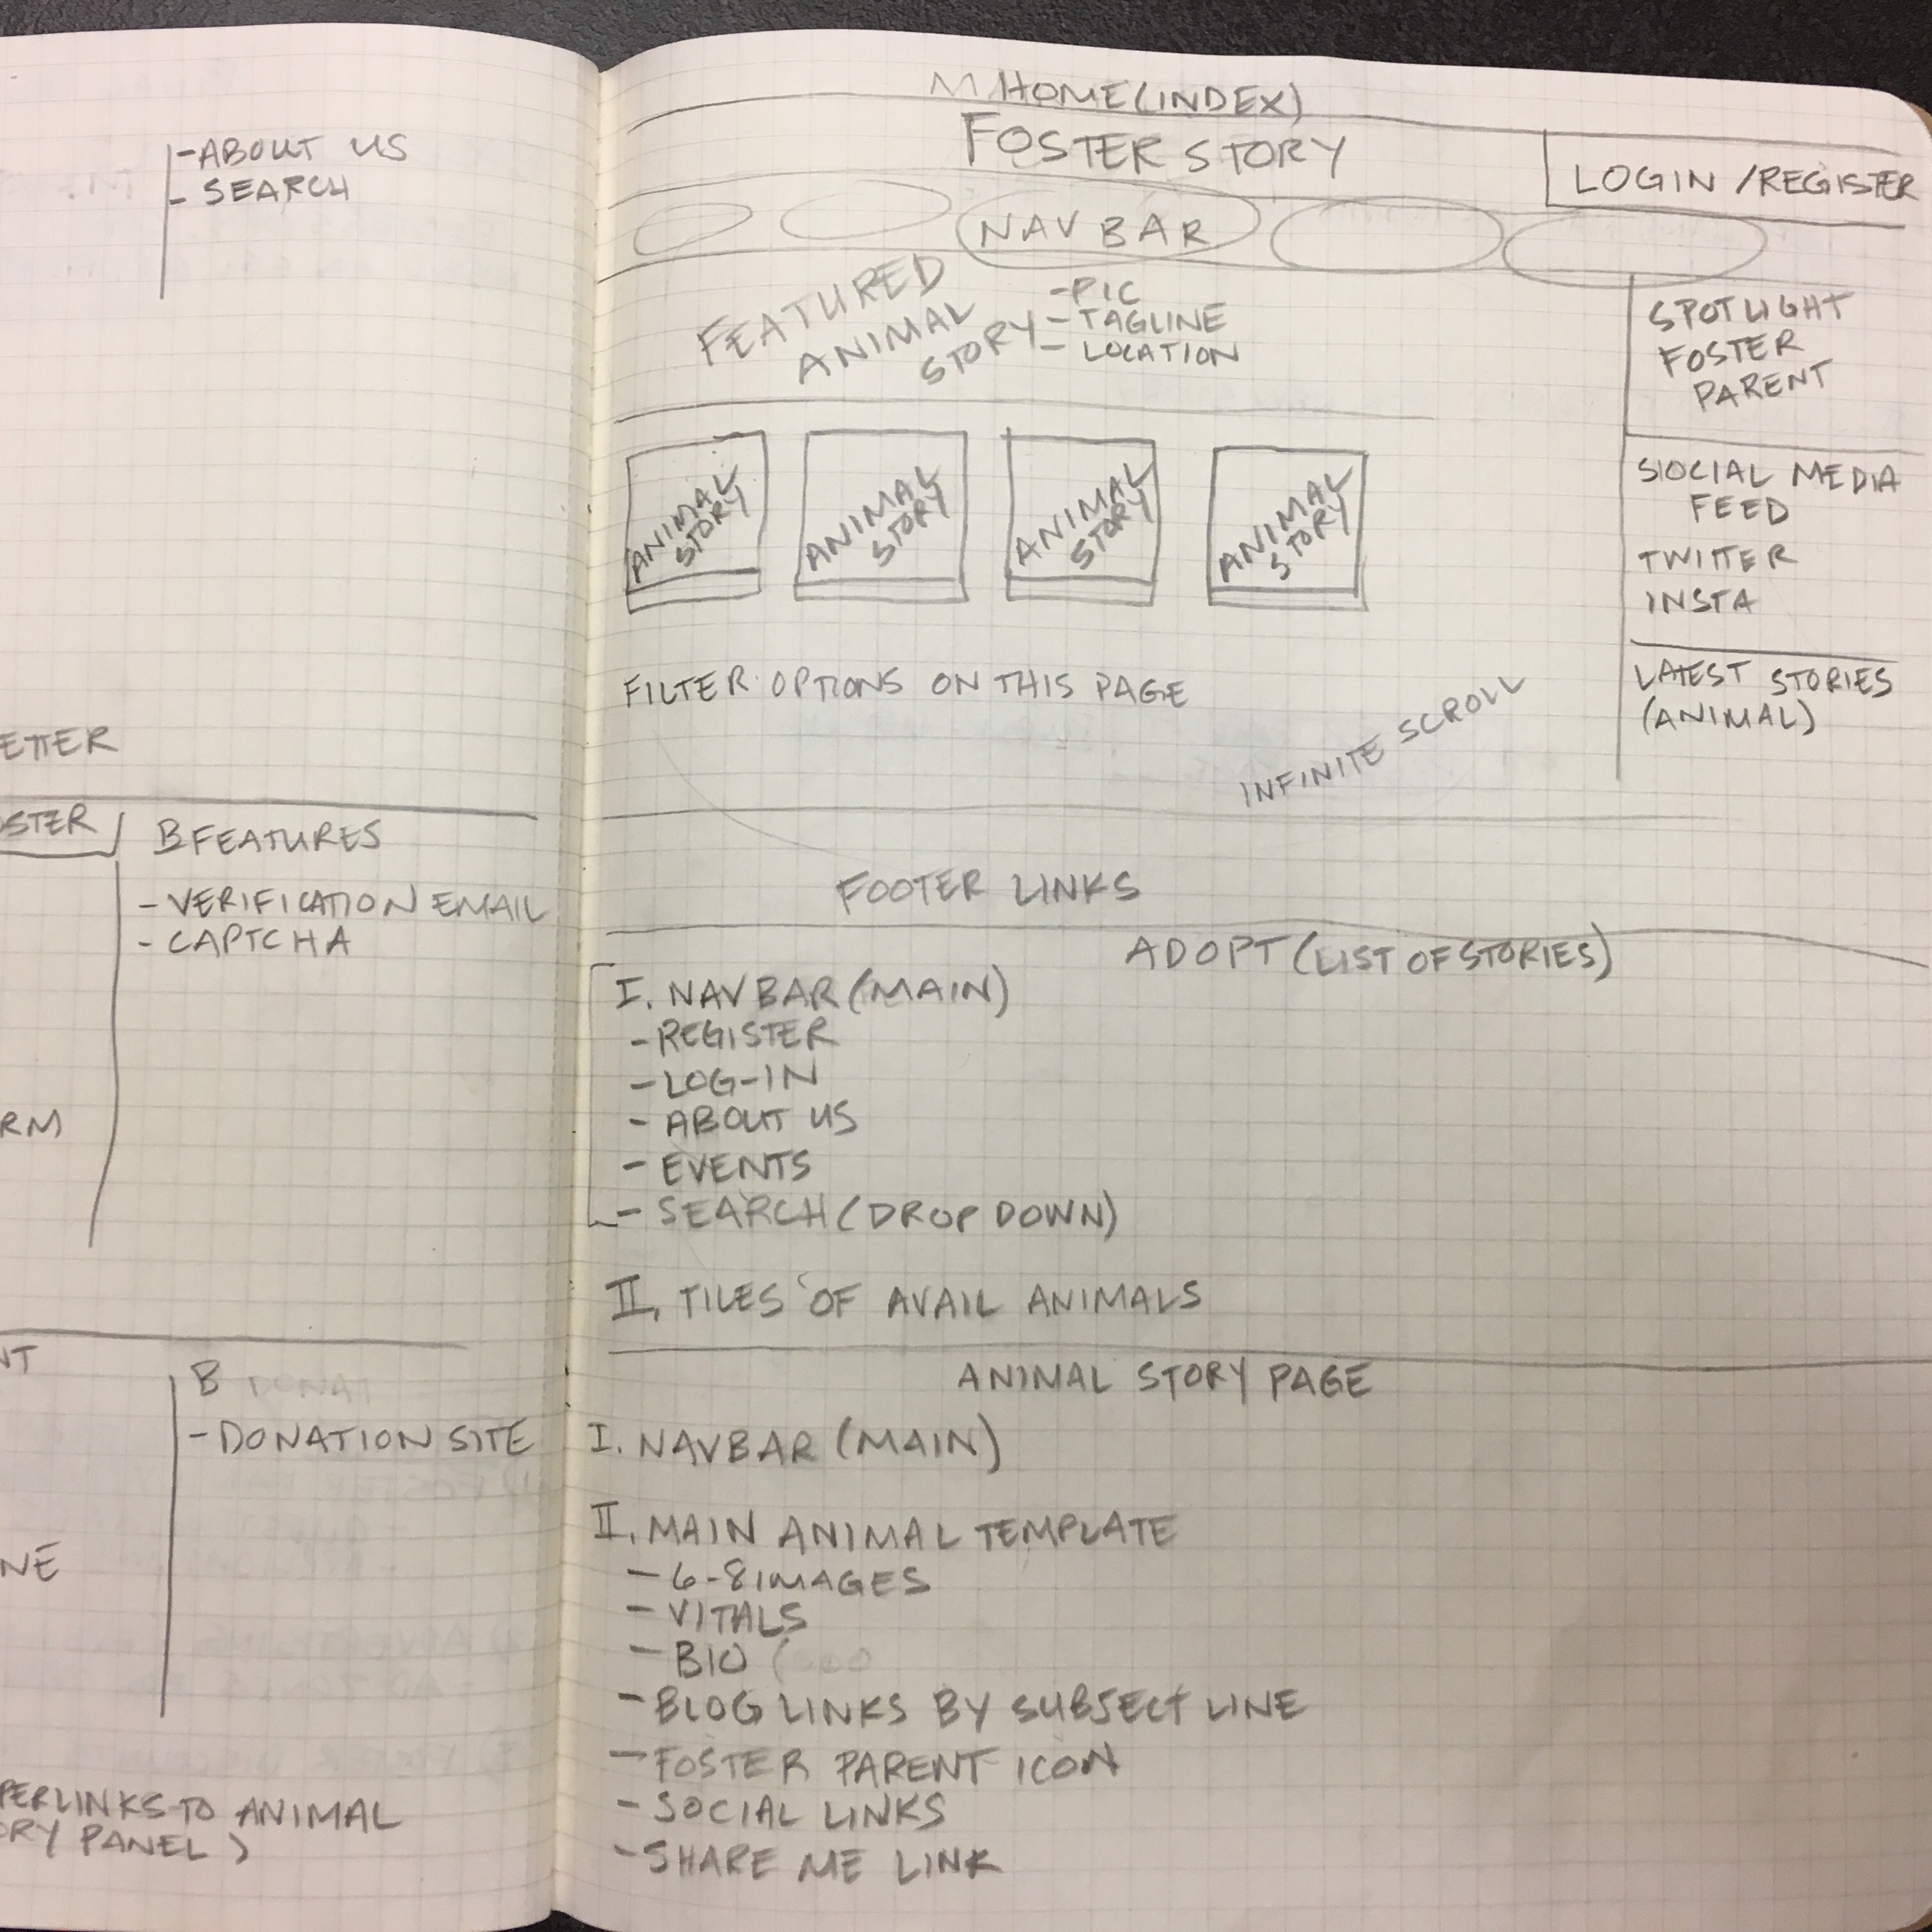 -ABOUT US
- SEARCH
ETTER
OSTER
B FEATURES
- VERIFICATION EMAIL
- CAPTCHA
RM
NT
B
- DONATION SITE
NE
PERLINKS TO ANIMAL
ORY PANEL)
HOME (INDEX)
FOSTER STORY
LOGIN /REGISTER
NAV BAR
FEATURED
ANIMAL
STORY
-PIC
- TAGLINE
- LOCATION
SPOTLIGHT
FOSTER
PARENT
ANIMAL
STORY
ANIMAL
STORY
ANIMAL
STORY
ANIMAL
STORY
SIOCIAL MEDIA
FEED
TWITTER
INSTA
LATEST STORIES
(ANIMAL)
FILTER OPTIONS ON THIS PAGE
INFINITE SCROLL
FOOTER LINKS
ADOPT (LIST OF STORIES)
I. NAV BAR (MAIN)
- REGISTER
- LOG-IN
- ABOUT US
- EVENTS
- SEARCH (DROP DOWN)
II. TILES OF AVAIL ANIMALS
ANIMAL STORY PAGE
I. NAVBAR (MAIN)
II. MAIN ANIMAL TEMPLATE
- 6-8 IMAGES
- VITALS
- BIO
- BLOG LINKS BY SUBJECT LINE
- FOSTER PARENT ICON
- SOCIAL LINKS
- SHARE ME LINK